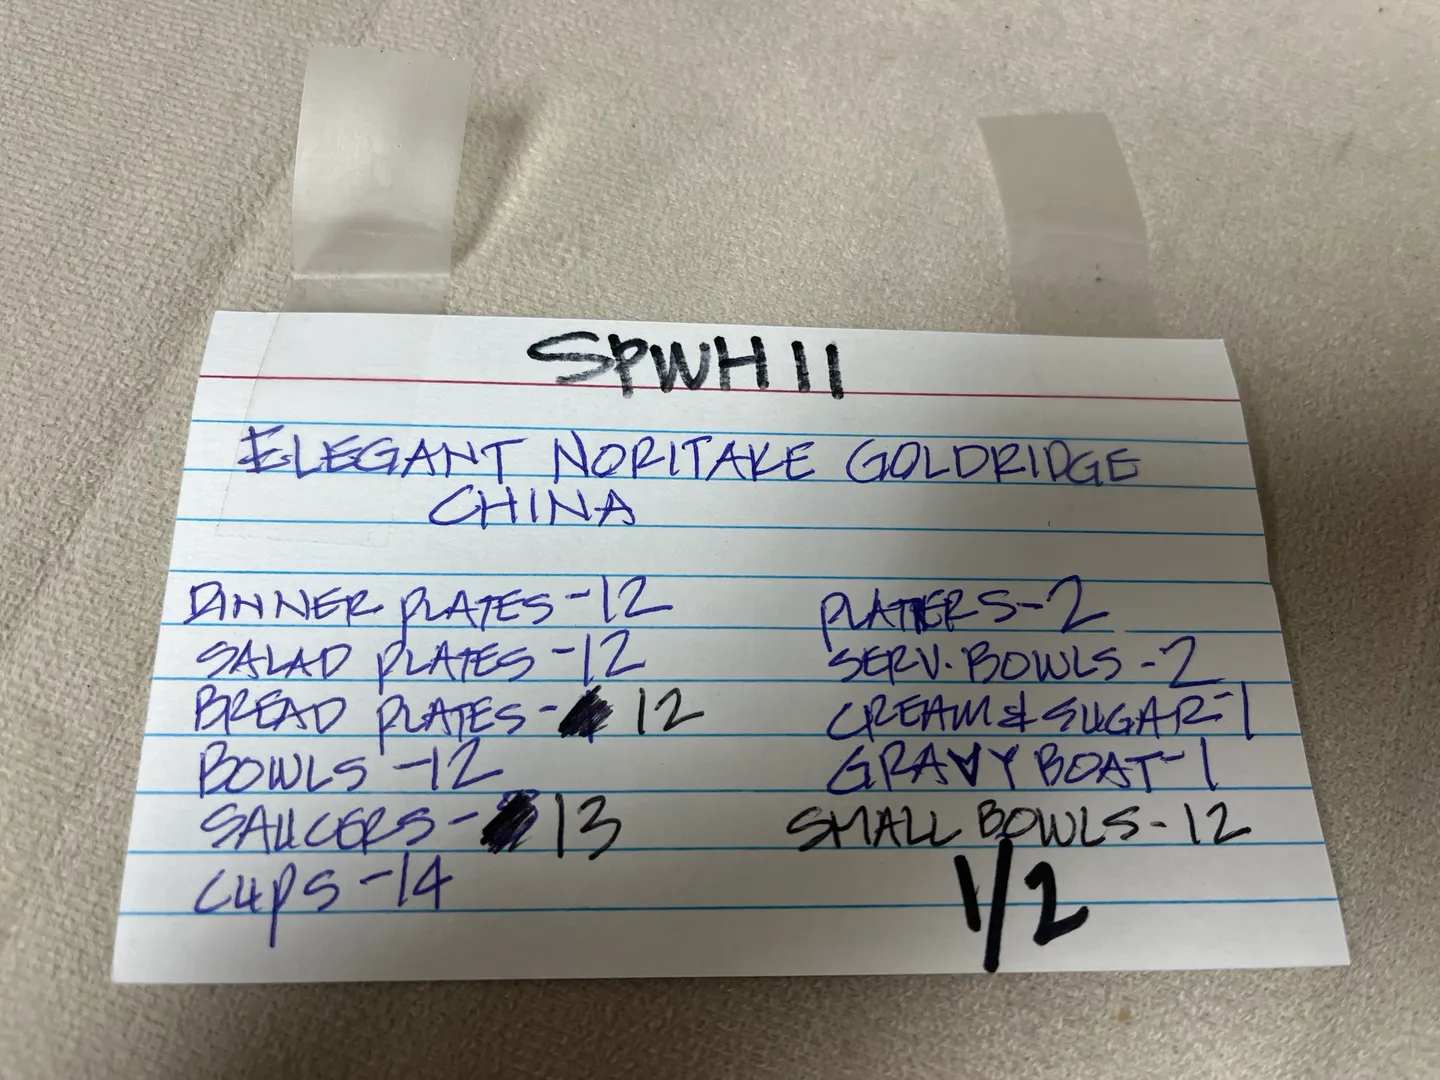 SPWH11
ELEGANT NORITAKE GOLDRIDGE
CHINA
DINNER PLATES - 12
SALAD PLATES - 12
BREAD PLATES - 12
BOWLS - 12
SAUCERS - 13
CUPS - 14
PLATTERS - 2
SERV. BOWLS - 2
CREAM & SUGAR - 1
GRAVY BOAT - 1
SMALL BOWLS - 12
1/2